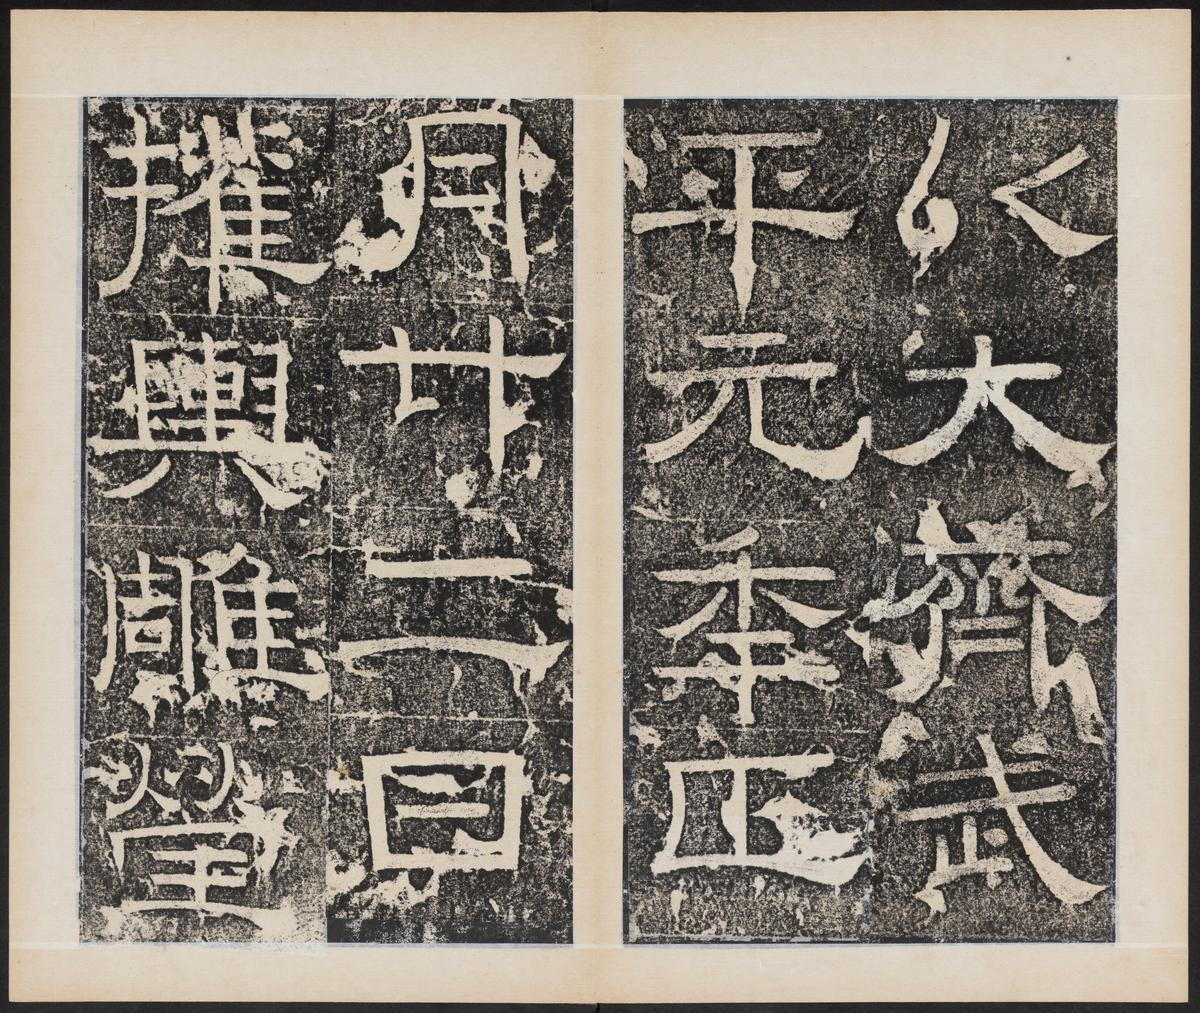 以大齊武
平元年正
月廿二日
權輿雕瑩